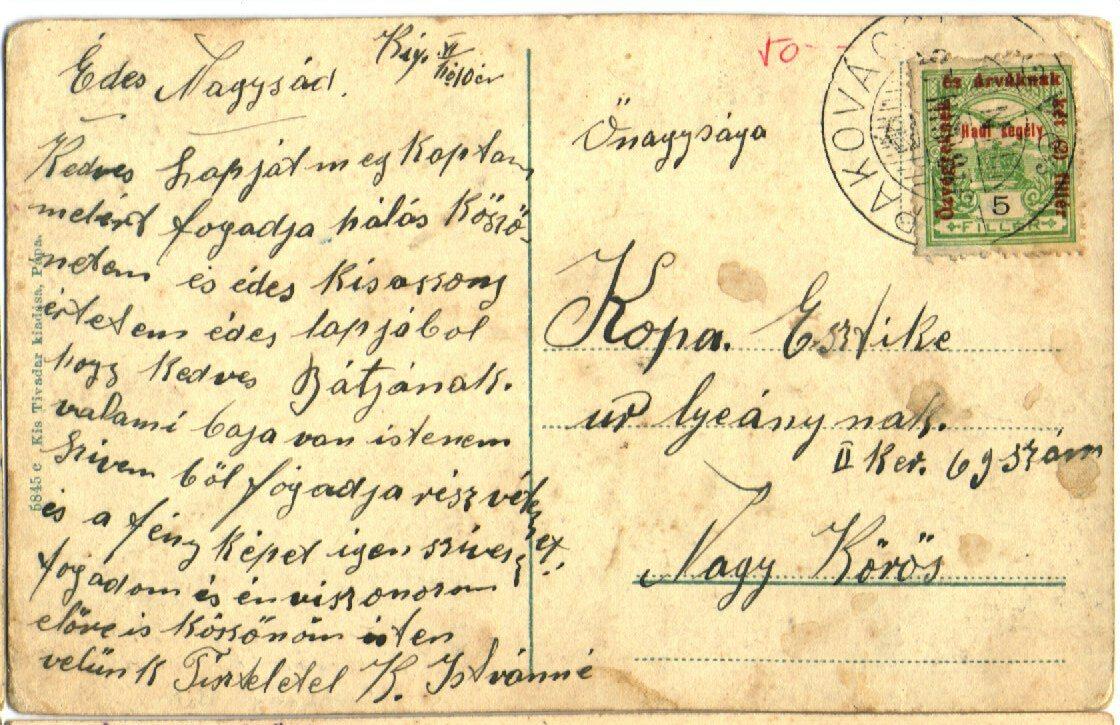 Édes Nagysád.
Kedves Lapját meg Kaptam
melért fogadja hálás Köszö-
netem és édes Kisasszony
értetem édes lapjából
hogy Kedves Bátjának.
valami baja van istenem
Szivem ből fogadja részvétemet.
és a fény Képet igen szivesen
fogadom és én viszonozom
előre is Köszönöm isten
velünk Tisztelettel K. Istvánné
5845 c Kis Tivadar kiadása, Pápa.
50
RAKOVÁC
Özvegyeknek és árváknak két (2) fillér
Hadi segély
5
FILLÉR
Önagysága
Kopa. Esztike
ur lyeánynak.
II Ker. 69 szám
Nagy Körös